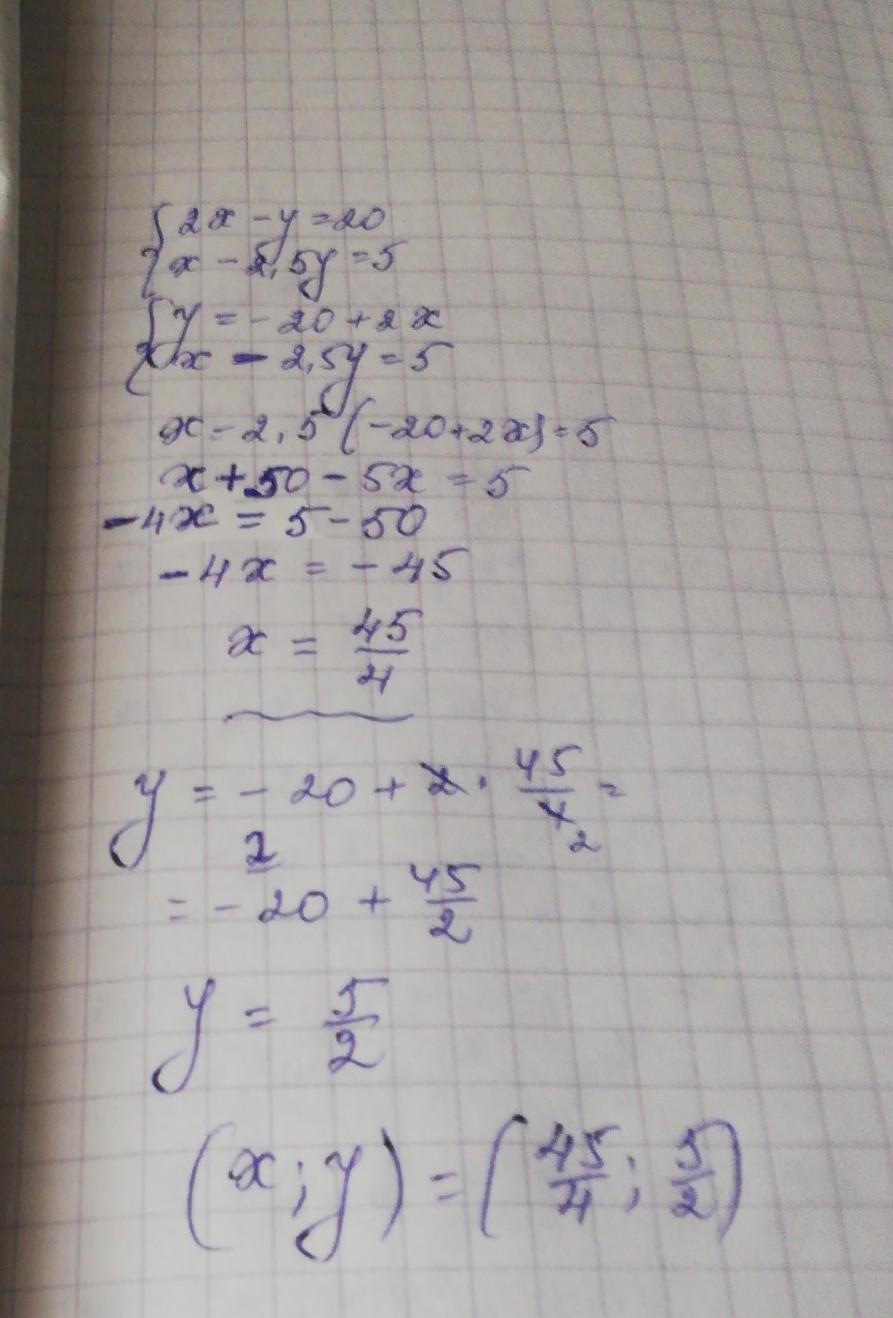 {2x - y = 20
{x - 2,5y = 5
{y = -20 + 2x
{x - 2,5y = 5
x - 2,5(-20+2x) = 5
x + 50 - 5x = 5
-4x = 5 - 50
-4x = -45
x = 45/4
y = -20 + 2 · 45/4 =
2
2
= -20 + 45/2
y = 5/2
(x; y) = (45/4; 5/2)